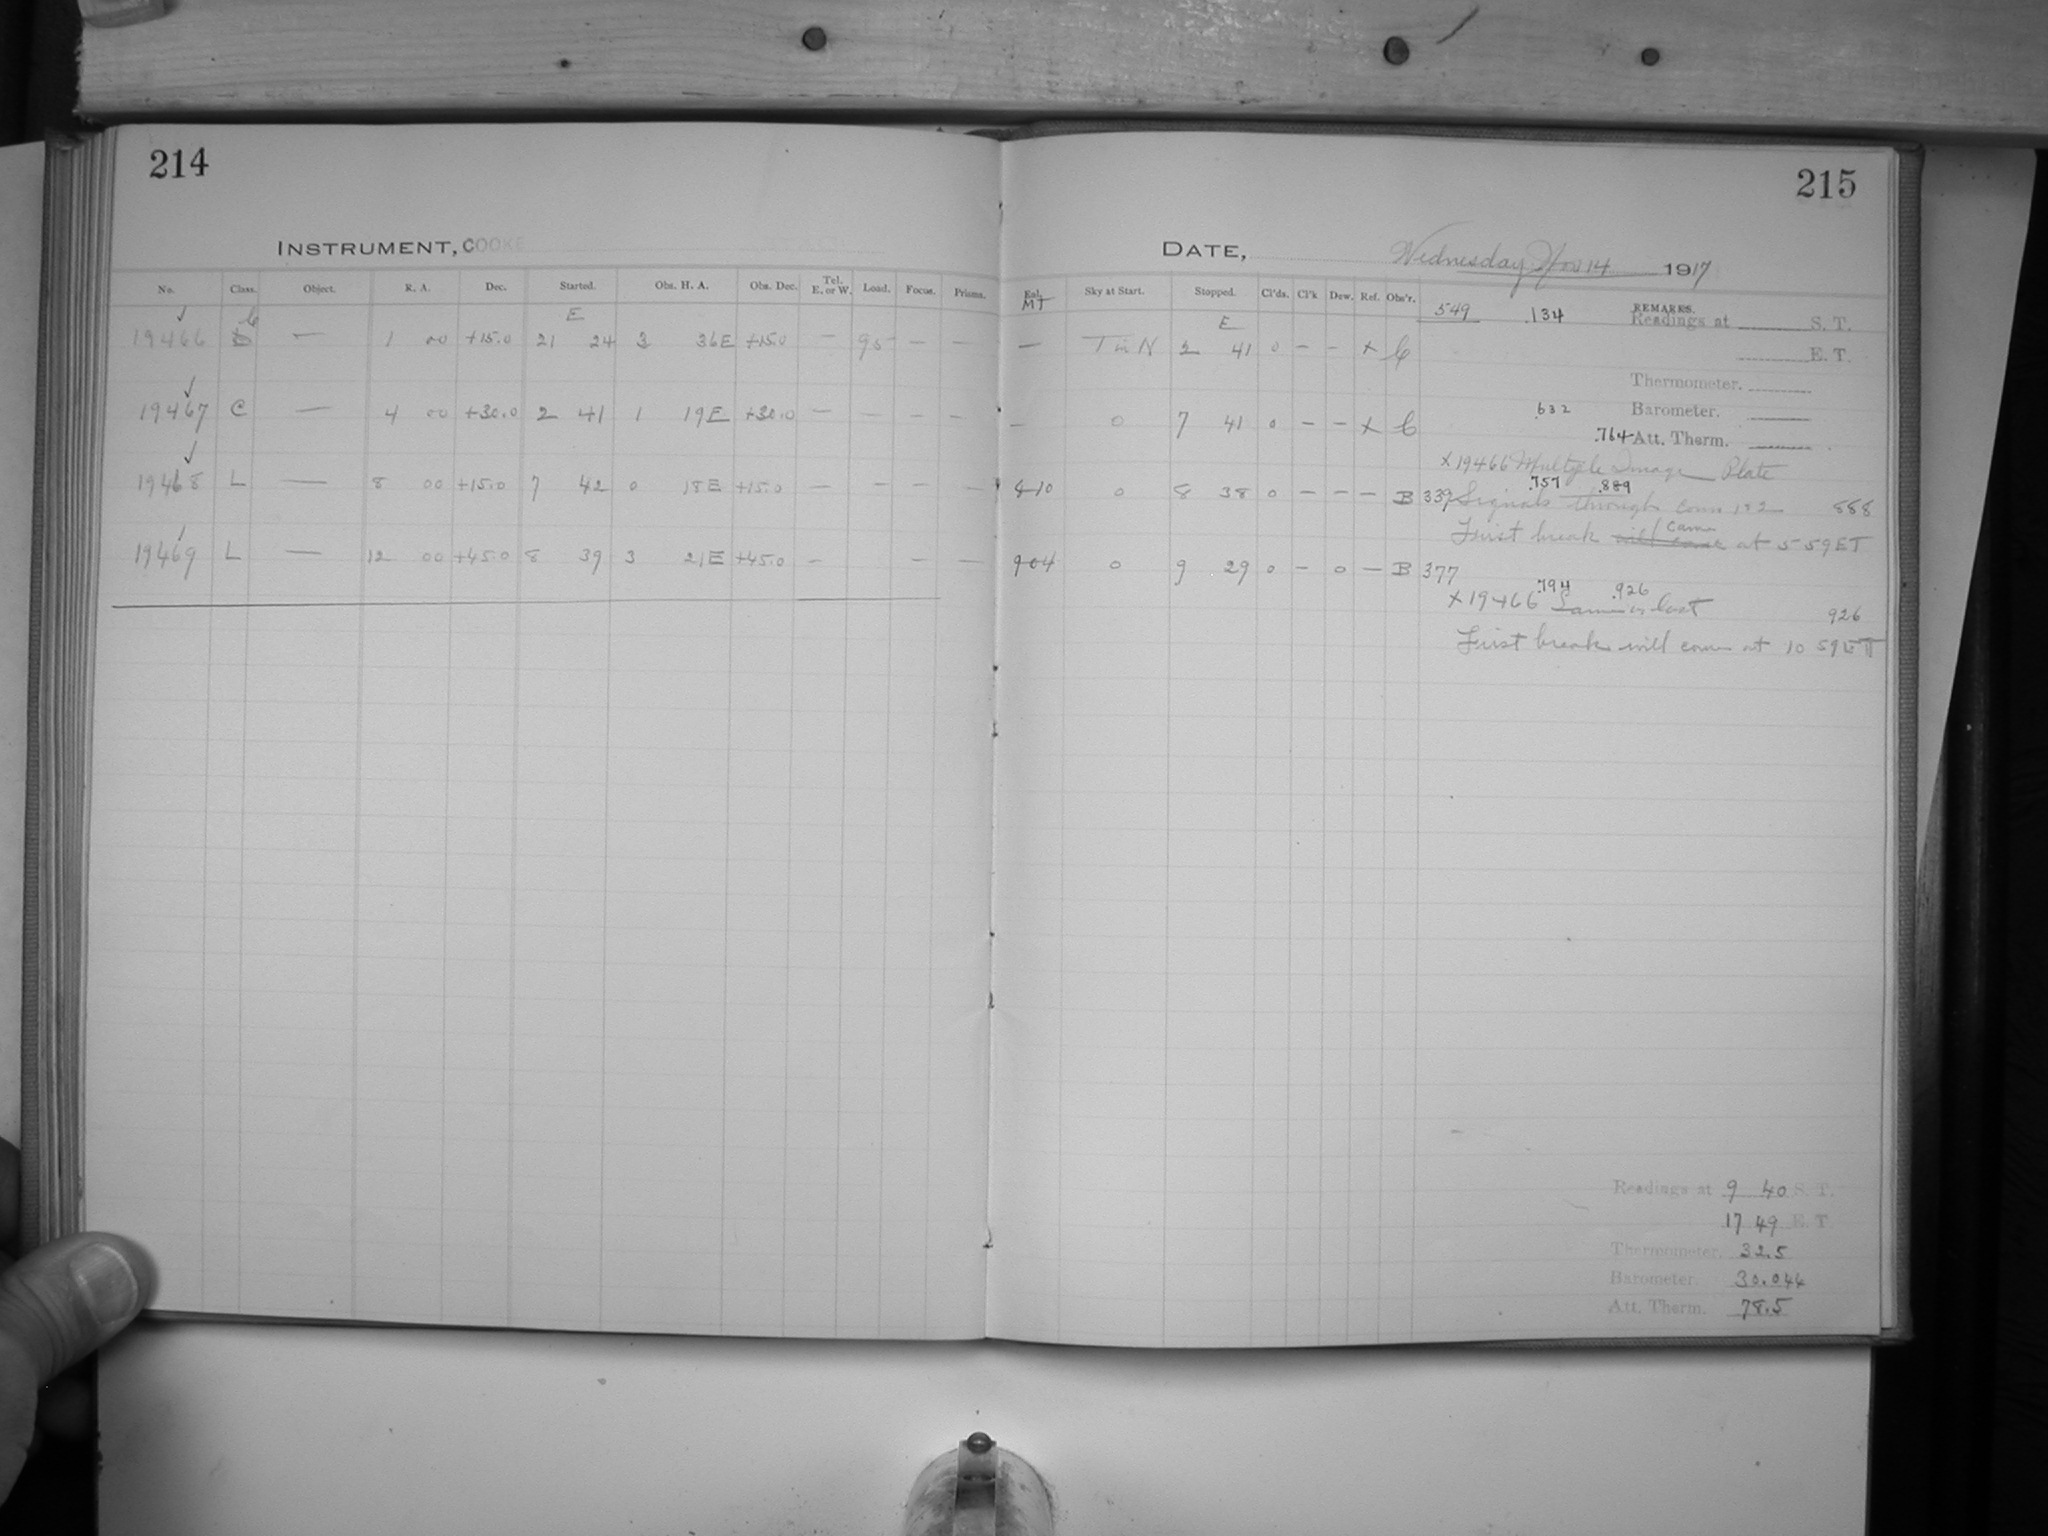 214
INSTRUMENT, COOKE
No. Class. Object. R. A. Dec. Started. Obs. H. A. Obs. Dec. Tel. E. or W. Load. Focus. Prisms.
E
19466 C — 1 00 +15.0 21 24 3 36E +15.0 — 95 — —
19467 C — 4 00 +30.0 2 41 1 19E +30.0 — — — —
19468 L — 8 00 +15.0 7 42 0 18E +15.0 — — — —
19469 L — 12 00 +45.0 8 39 3 21E +45.0 — — —
215
DATE, Wednesday Nov 14 1917
MT Sky at Start. Stopped. Cl'ds. Cl'k Dew. Ref. Obs'r.
E
— T in N 2 41 0 — — x C
— 0 7 41 0 — — x C
8 10 0 8 38 0 — — — B 339
9 04 0 9 29 0 — 0 — B 377
549 .134 REMARKS.
Readings at S. T.
E. T.
Thermometer.
.632 Barometer.
.764 Att. Therm.
x 19466 Multiple Image Plate
.757 .889
Signals through 888
came
First break will come at 5 59 ET
.794 .926
x 19466 Same as last
926
First break will come at 10 59 ET
Readings at 9 40 S. T.
17 49 E. T.
Thermometer. 32.5
Barometer. 30.044
Att. Therm. 78.5